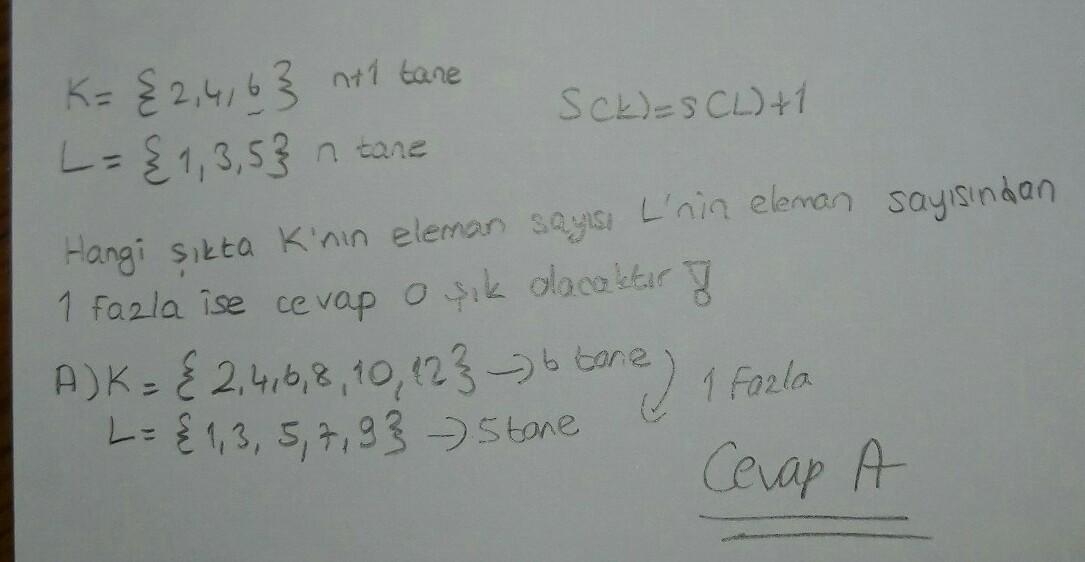 K= {2,4,6} n+1 tane
S(K)=s(L)+1
L= {1,3,5} n tane
Hangi şıkta K'nın eleman sayısı L'nin eleman sayısından
1 fazla ise cevap o şık olacaktır
A) K = {2,4,6,8,10,12} → 6 tane
1 fazla
L= {1,3,5,7,9} → 5 tane
Cevap A